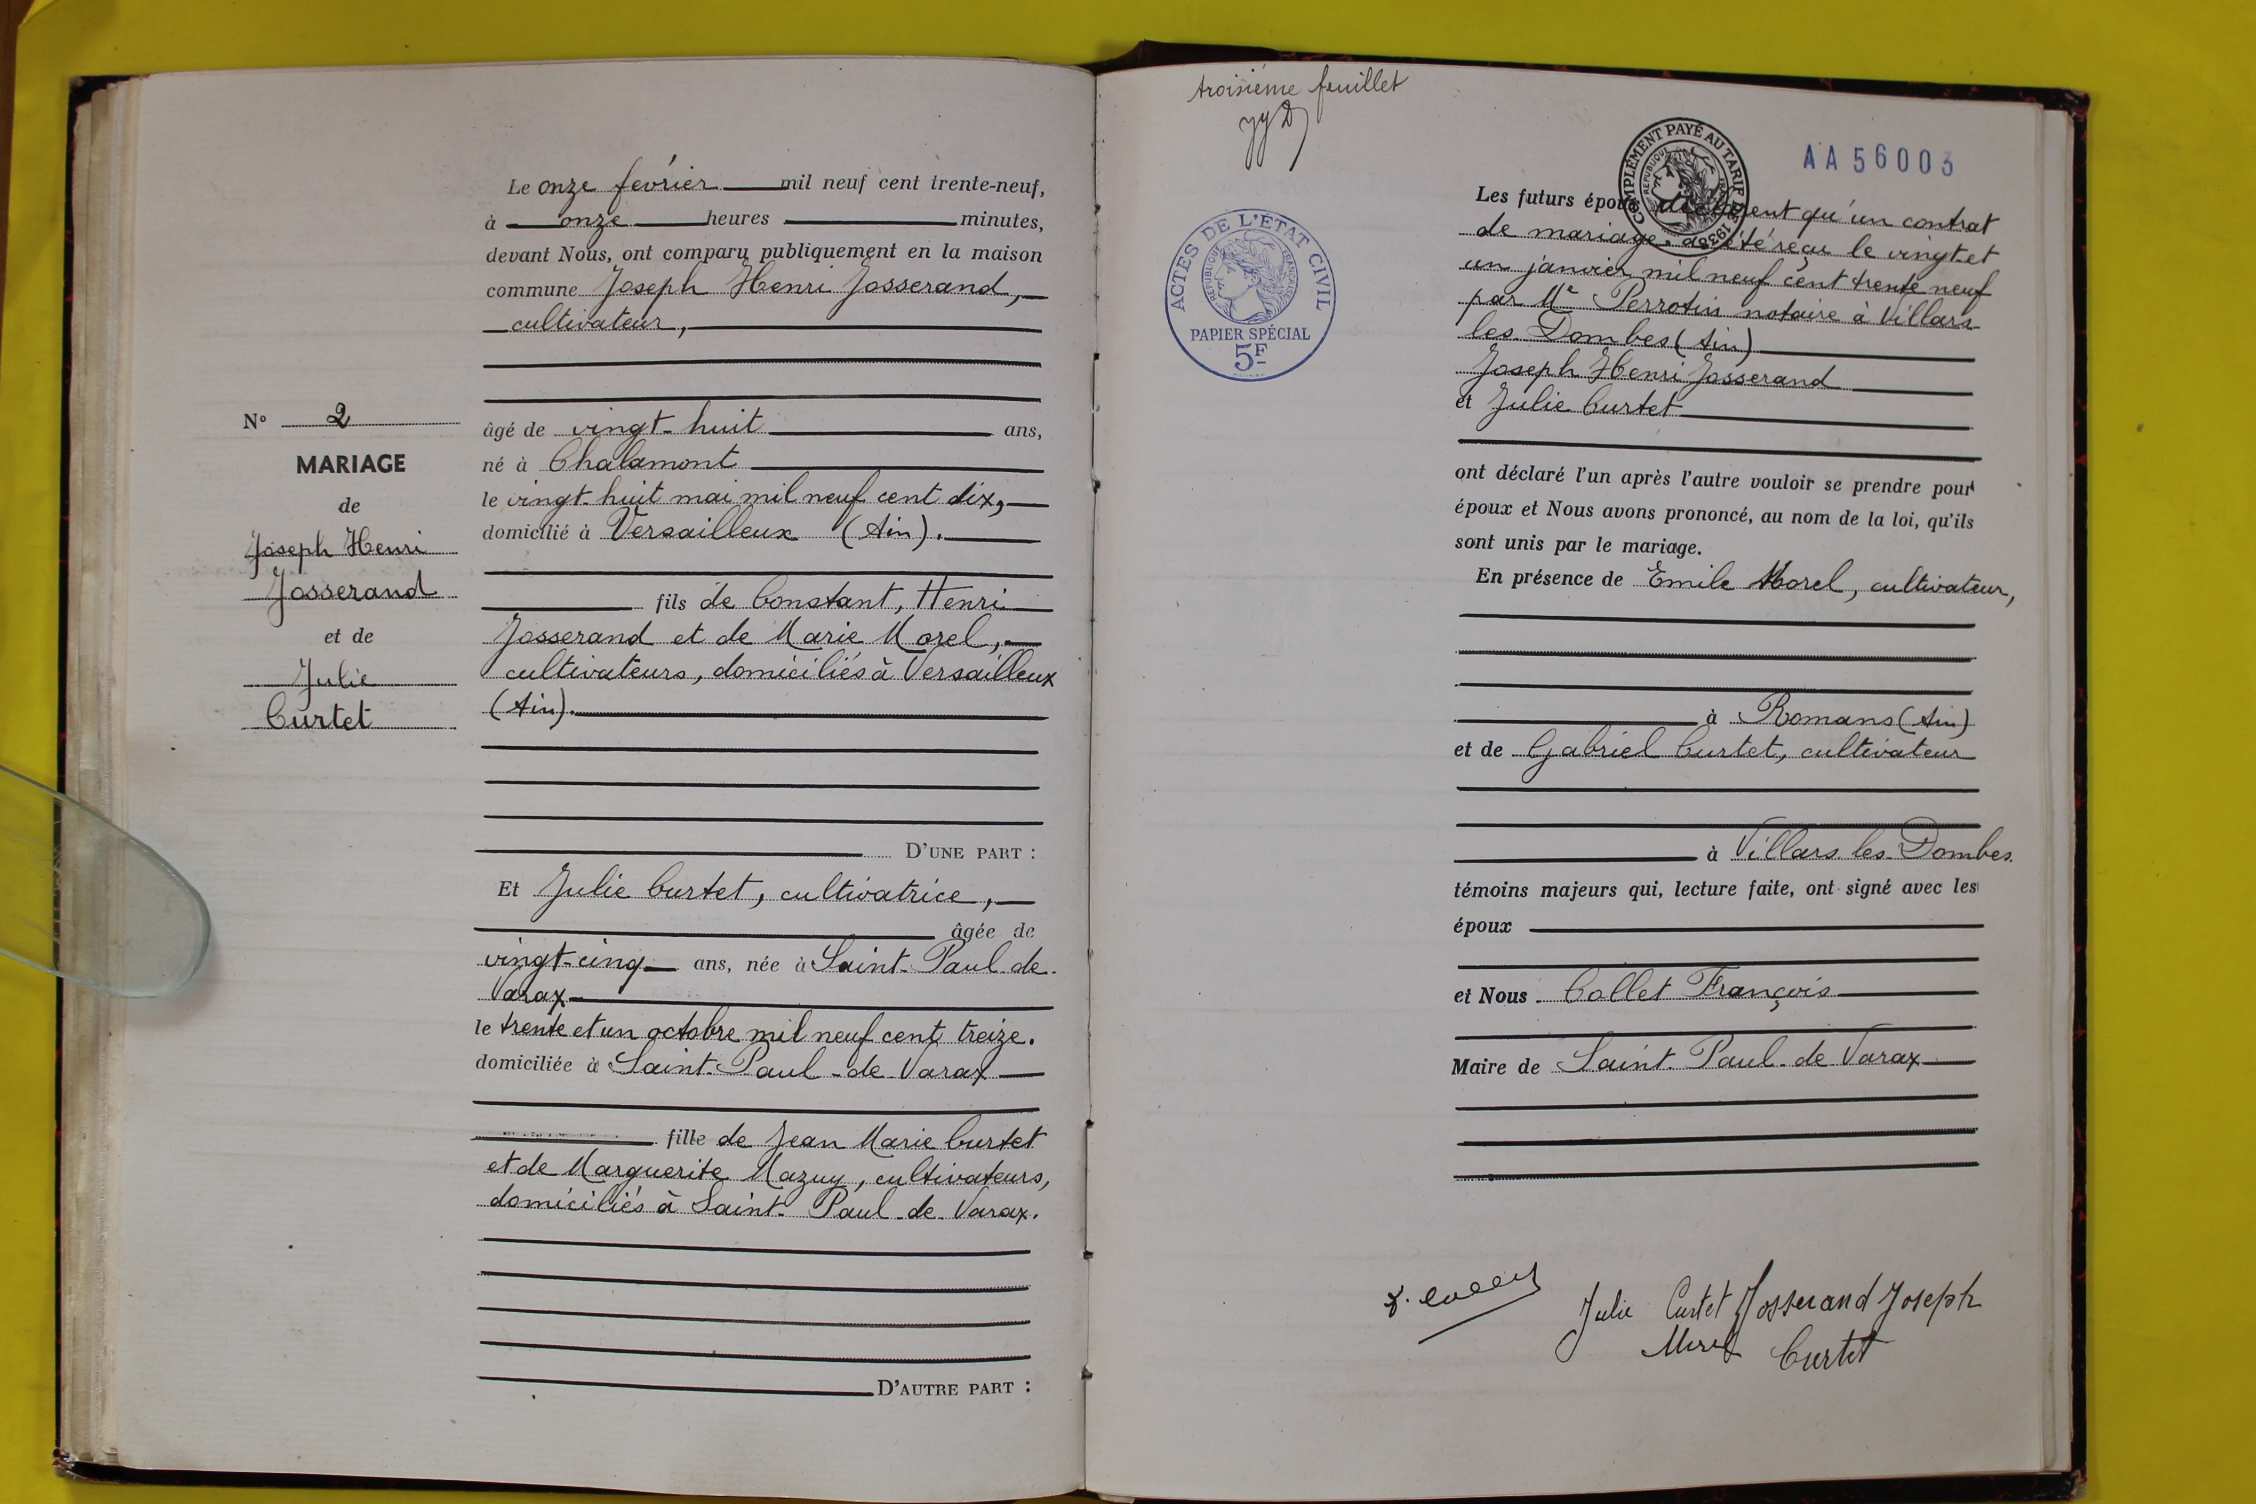 Le onze février mil neuf cent trente-neuf,
à onze heures minutes,
devant Nous, ont comparu publiquement en la maison
commune Joseph Henri Josserand,
cultivateur,
âgé de vingt-huit ans,
né à Chalamont
le vingt-huit mai mil neuf cent dix,
domicilié à Versailleux (Ain).
fils de Constant, Henri
Josserand et de Marie Morel,
cultivateurs, domiciliés à Versailleux
(Ain).
D'UNE PART :
Et Julie Curtet, cultivatrice,
âgée de
vingt-cinq ans, née à Saint-Paul-de-
Varax
le trente et un octobre mil neuf cent treize.
domiciliée à Saint-Paul-de-Varax
fille de Jean Marie Curtet
et de Marguerite Mazuy, cultivateurs,
domiciliés à Saint-Paul-de-Varax.
D'AUTRE PART :
N° 2
MARIAGE
de
Joseph Henri
Josserand
et de
Julie
Curtet
troisième feuillet
ACTES DE L'ÉTAT CIVIL
RÉPUBLIQUE FRANÇAISE
PAPIER SPÉCIAL
5F
COMPLÉMENT PAYÉ AU TARIF DE 1938
AA56003
Les futurs époux déclarent qu'un contrat
de mariage a été reçu le vingt et
un janvier mil neuf cent trente neuf
par Me Perrotin notaire à Villars
les-Dombes (Ain)
Joseph Henri Josserand
et Julie Curtet
ont déclaré l'un après l'autre vouloir se prendre pour
époux et Nous avons prononcé, au nom de la loi, qu'ils
sont unis par le mariage.
En présence de Emile Morel, cultivateur,
à Romans (Ain)
et de Gabriel Curtet, cultivateur
à Villars les-Dombes.
témoins majeurs qui, lecture faite, ont signé avec les
époux
et Nous Collet François
Maire de Saint-Paul-de-Varax
Julie Curtet Josserand Joseph
Morel Curtet